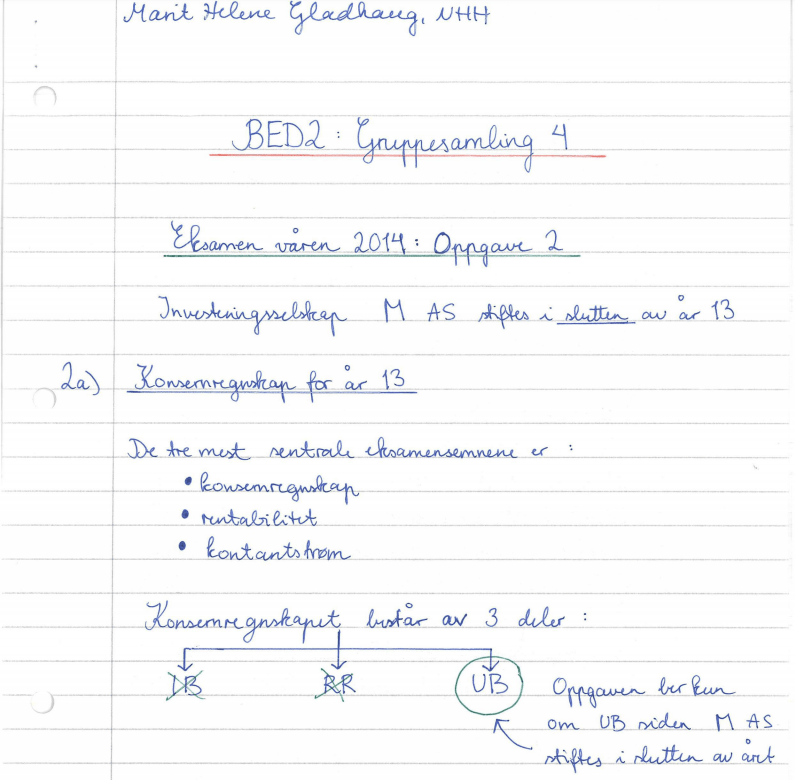 Marit Helene Gladhaug, NHH
BED2: Gruppesamling 4
Eksamen våren 2014: Oppgave 2
Investeringsselskap M AS stiftes i slutten av år 13
2a) Konsernregnskap for år 13
De tre mest sentrale eksamensemnene er :
• konsernregnskap
• rentabilitet
• kontantstrøm
Konsernregnskapet består av 3 deler :
IB RR UB Oppgaven ber kun
om UB siden M AS
stiftes i slutten av året